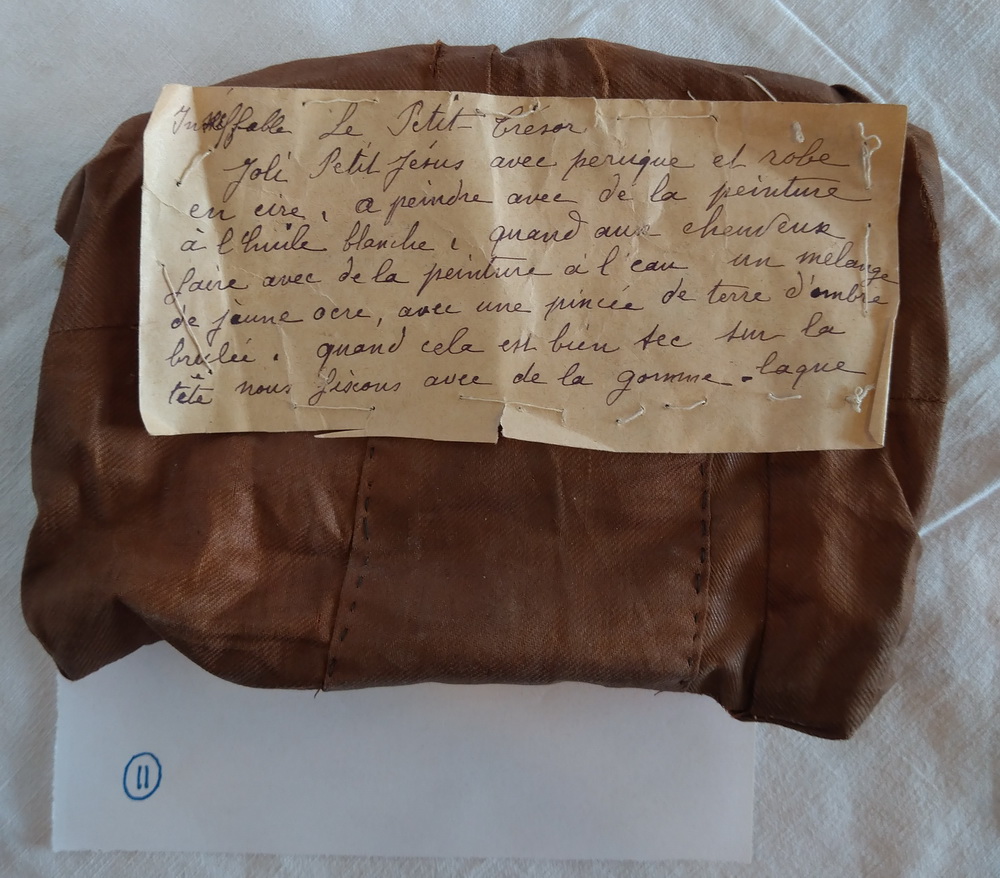 Ineffable Le Petit Trésor
Joli Petit Jésus avec perruque et robe
en cire, a peindre avec de la peinture
à l'huile blanche, quand aux cheveux
faire avec de la peinture à l'eau un mélange
de jaune ocre, avec une pincée de terre d'ombre
brûlée. quand cela est bien sec sur la
tête nous fixons avec de la gomme-laque
11